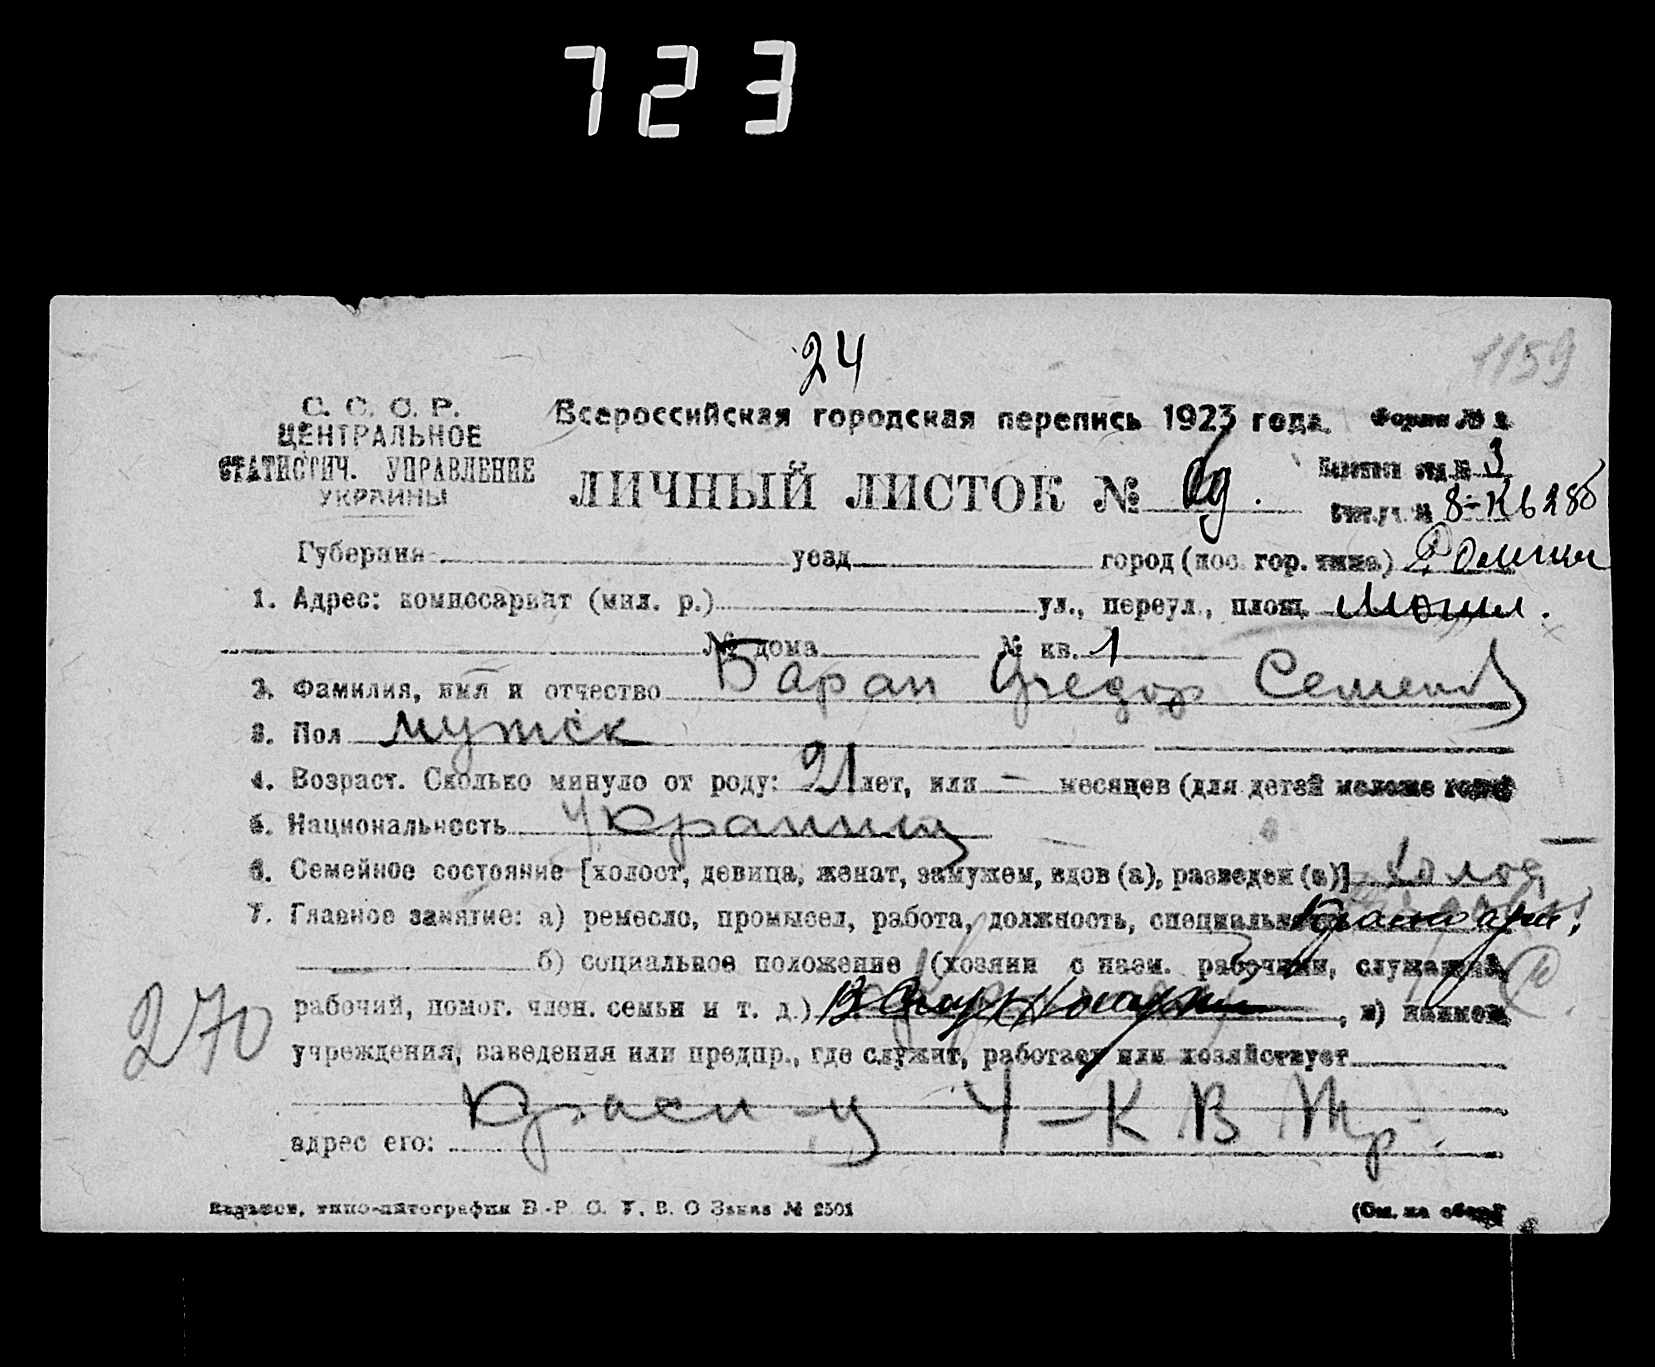 723
24
1159
С. С. С. Р.
ЦЕНТРАЛЬНОЕ
СТАТИСТИЧ. УПРАВЛЕНИЕ
УКРАИНЫ
Всероссийская городская перепись 1923 года. Форма №
ЛИЧНЫЙ ЛИСТОК №
отд. № 3
8-К
Губерния уезд город (пос. гор. типа) Ромны
1. Адрес: комиссариат (мил. р.) ул., переул., площ.
№ дома № кв. 1
2. Фамилия, имя и отчество Баран Федор Семенов
3. Пол мужск
4. Возраст. Сколько минуло от роду: 21 лет, или — месяцев (для детей моложе года)
5. Национальность Украинец
6. Семейное состояние [холост, девица, женат, замужем, вдов (а), разведен (а)] холост
7. Главное занятие: а) ремесло, промысел, работа, должность, специальность
б) социальное положение (хозяин с наем. рабочими, служащий,
рабочий, помог. член. семьи и т. д.) , в) наимен.
270
учреждения, заведения или предпр., где служит, работает или хозяйствует
адрес его:
Харьков, типо-литография В.-Р. С. У. В. О Заказ № 2501
(См. на обор.)